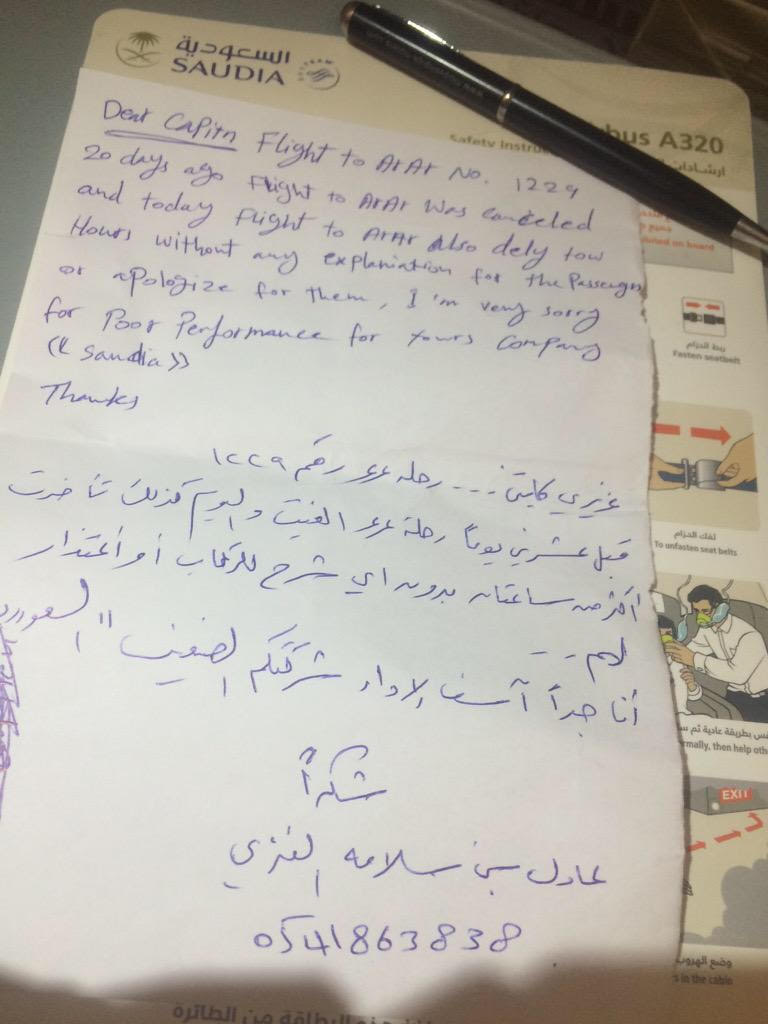 السعودية
SAUDIA
SKYTEAM
bus A320
Safety Instruc
ارشادات
Dear Capitn Flight to ArAr No. 1229
20 days ago Flight to ArAr Was canceled
and today Flight to ArAr also dely tow
Hours without any explaniation for the Passengrs
or apologize for them, I'm very sorry
for Poor Performance for yours Company
(( Saudia ))
Thanks
عزيزي كابتن ... رحلة عرعر رقم ١٢٢٩
قبل عشرين يوماً رحلة عرعر الغيت واليوم كذلك تأخرت
أكثر من ساعتان بدون اي شرح للركاب أو أعتذار
لهم ..
أنا جداً آسف لاداء شركتكم الضعيف " السعودي
شكراً
عادل بن سلامه العنزي
0541863838
ined on board
ربط الحزام
Fasten seatbelt
لفك الحزام
To unfasten seat belts
فس بطريقة عادية ثم سا
rmally, then help oth
EXIT
وضع الهروب
s in the cabin
هذه البطاقة من الطائرة